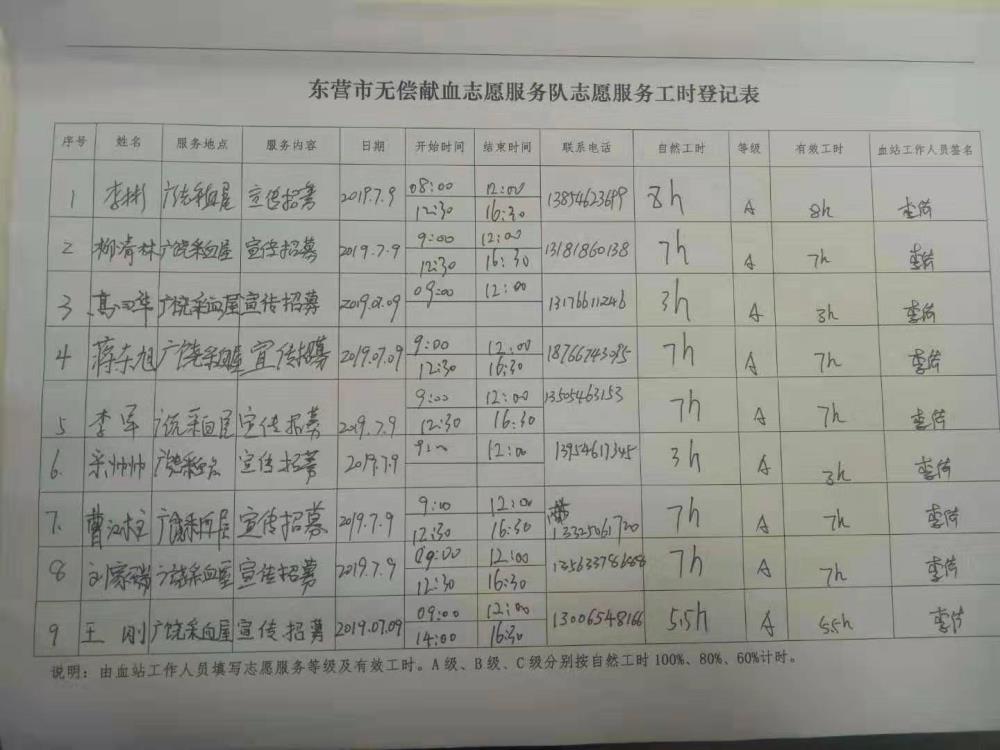 东营市无偿献血志愿服务队志愿服务工时登记表
序号 姓名 服务地点 服务内容 日期 开始时间 结束时间 联系电话 自然工时 等级 有效工时 血站工作人员签名
1 李彬 广饶采血屋 宣传招募 2019.7.9 08:00 12:00 8h A 8h
12:30 16:30
2 柳清林 广饶采血屋 宣传招募 2019.7.9 9:00 12:00 13181860138 7h A 7h
12:30 16:30
3 广饶采血屋 宣传招募 2019.07.09 09:00 12:00 13176611246 3h A 3h
4 蒋东旭 广饶采血屋 宣传招募 2019.07.09 9:00 12:00 18766743095 7h A 7h
12:30 16:30
5 李军 广饶采血屋 宣传招募 2019.7.9 9:00 12:00 13505463153 7h A 7h
12:30 16:30
6. 宋帅帅 宣传招募 2019.7.9 12:00 13954617345 3h A 3h
7. 曹江柱 广饶采血屋 宣传招募 2019.7.9 9:00 12:00 13325061720 7h A 7h
12:30 16:30
8 广饶采血屋 宣传招募 2019.7.9 09:00 12:00 7h A 7h
12:30 16:30
9 王刚 广饶采血屋 宣传招募 2019.07.09 09:00 12:00 13006548166 5.5h A 5.5h
14:00 16:30
说明：由血站工作人员填写志愿服务等级及有效工时。A级、B级、C级分别按自然工时100%、80%、60%计时。